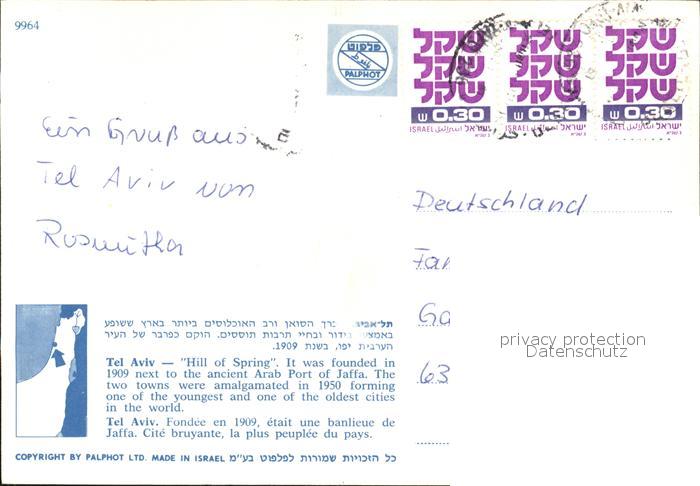 9964
פלפוט
PALPHOT
שקל שקל שקל
שקל שקל שקל
שקל שקל שקל
ש 0.30 ש 0.30 ש 0.30
ISRAEL اسرائيل ישראל ISRAEL اسرائيل ישראל ISRAEL اسرائيل ישראל
Ein Gruß aus
Tel Aviv von
Rosmitha
Deutschland
Fam
Ga
63
privacy protection
Datenschutz
תל-אביב רך הסואן ורב האוכלוסים ביותר בארץ ששופע
באמצעי בידור ובחיי תרבות תוססים. הוקם כפרבר של העיר
הערבית יפו, בשנת 1909.
Tel Aviv — "Hill of Spring". It was founded in
1909 next to the ancient Arab Port of Jaffa. The
two towns were amalgamated in 1950 forming
one of the youngest and one of the oldest cities
in the world.
Tel Aviv. Fondée en 1909, était une banlieue de
Jaffa. Cité bruyante, la plus peuplée du pays.
COPYRIGHT BY PALPHOT LTD. MADE IN ISRAEL כל הזכויות שמורות לפלפוט בע"מ